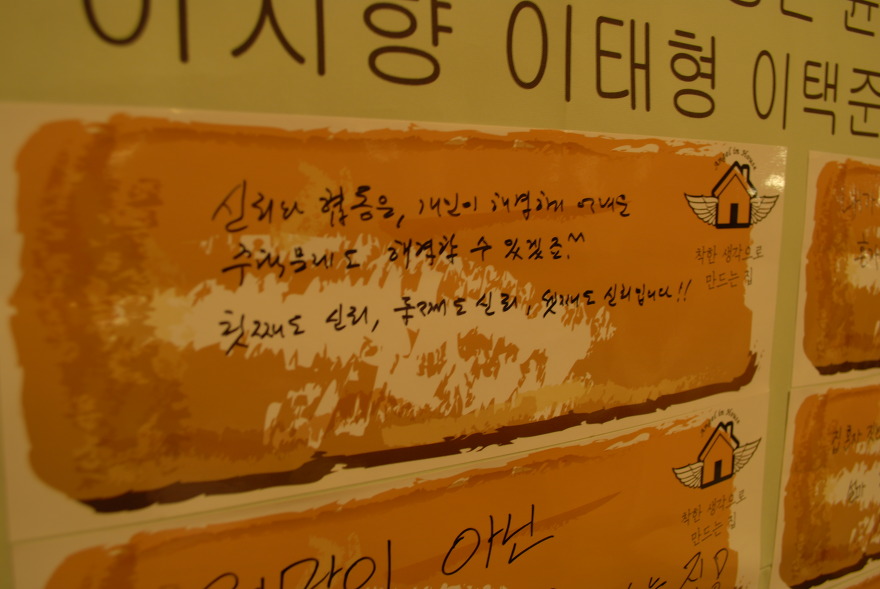 이지향 이태형 이택준
신뢰와 협동은, 개인이 해결하기 어려운
주택문제도 해결할 수 있겠죠^^
첫째도 신뢰, 둘째도 신뢰, 셋째도 신뢰입니다!!
Angel in House
착한 생각으로
만드는 집
Angel in House
착한 생각으로
만드는 집
아닌